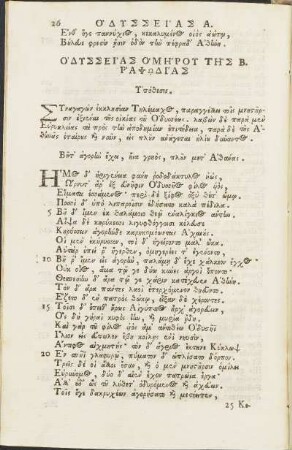 26 ὈΔΥΣΣΕΊΑΣ Α.
Ἔνθ' ὅγε παννύχιος, κεκαλυμμένος οἰὸς ἀώτῳ,
Βούλευε φρεσὶν ᾗσιν ὁδὸν τὴν πέφραδ' Ἀθήνη.
ὈΔΥΣΣΕΊΑΣ ὉΜΗ΄ΡΟΥ ΤΗ͂Σ Β.
ῬΑΨΩΔΊΑΣ
Ὑπόθεσις.
Συναγαγὼν ἐκκλησίαν Τηλέμαχος, παραγγέλλει τοῖς μνηστῆρ-
σιν ἐξιέναι τῆς οἰκίας τοῦ Ὀδυσσέως. λαβὼν δὲ παρὰ μὲν
Βῆτ' ἀγορὴν ἔχει,
Ἦμος δ' ἠριγένεια φάνη ῥοδοδάκτυλος ἠώς,
Ὤρνυτ' ἄρ' ἐξ εὐνῆφιν Ὀδυσσῆος φίλος υἱὸς,
Εἵματα ἑσσάμενος· περὶ δὲ ξίφος ὀξὺ θέτ' ὤμῳ·
Ποσσὶ δ' ὑπὸ λιπαροῖσιν ἐδήσατο καλὰ πέδιλα.
5 Βῆ δ' ἴμεν ἐκ θαλάμοιο θεῷ ἐναλίγκιος ἄντην.
Αἶψα δὲ κηρύκεσσι λιγυφθόγγοισι κέλευσε
Κηρύσσειν ἀγορήνδε καρηκομόωντας Ἀχαιούς.
Οἱ μὲν ἐκήρυσσον, τοὶ δ' ἠγείροντο μάλ' ὦκα.
Αὐτὰρ ἐπεί ῥ' ἤγερθεν, ὁμηγερέες τ' ἐγένοντο,
10 Βῆ ῥ' ἴμεν εἰς ἀγορὴν, παλάμῃ δ' ἔχε χάλκεον ἔγχος·
Οὐκ οἶος, ἅμα τῷ γε δύω κύνες ἀργοὶ ἕποντο·
Θεσπεσίην δ' ἄρα τῷ γε χάριν κατέχευεν Ἀθήνη.
Τὸν δ' ἄρα πάντες λαοὶ ἐπερχόμενον θηεῦντο.
Ἕζετο δ' ἐν πατρὸς θώκῳ, εἶξαν δὲ γέροντες.
15 Τοῖσι δ' ἔπειθ' ἥρως Αἰγύπτιος ἦρχ' ἀγορεύειν,
Ὃς δὴ γήραϊ κυφὸς ἔην, καὶ μυρία ᾔδη·
Καὶ γὰρ τοῦ φίλος υἱὸς ἅμ' ἀντιθέῳ Ὀδυσῆϊ
Ἴλιον εἰς εὔπωλον ἔβη κοίλῃς ἐνὶ νηυσὶν,
Ἄντιφος αἰχμητής· τὸν δ' ἄγριος ἔκτανε Κύκλωψ
20 Ἐν σπῆϊ γλαφυρῷ, πύματον δ' ὡπλίσσατο δόρπον.
Τρεῖς δέ οἱ ἄλλοι ἔσαν, καὶ ὁ μὲν μνηστῆρσιν ὁμίλει
Εὐρύνομος, δύο δ' αἰὲν ἔχον πατρώϊα ἔργα·
Ἀλλ' οὐδ' ὣς τοῦ λήθετ' ὀδυρόμενος καὶ ἀχεύων.
Τοῖς ὅγε δακρυχέων ἀγορήσατο καὶ μετέειπεν,
25 Κέ-